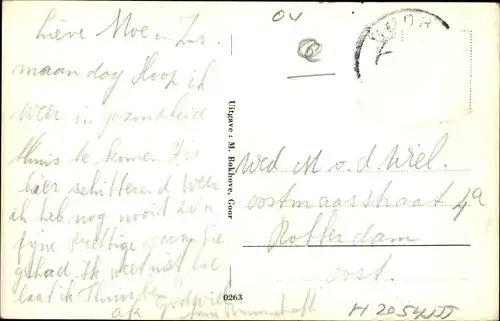 Lieve Moe en Zus.
maandag Hoop ik
weer in gezondheid
thuis te komen. T is
hier schitterend weer
ik heb nog nooit zo'n
fijne prettige vacantie
gehad. Ik weet niet hoe
laat ik thuis ben
OV
6
GOOR
Uitgave: M. Bokhove, Goor
0263
Wed M. v. d Wiel.
oostmaasstraat 4a
Rotterdam
oost.
H 2054